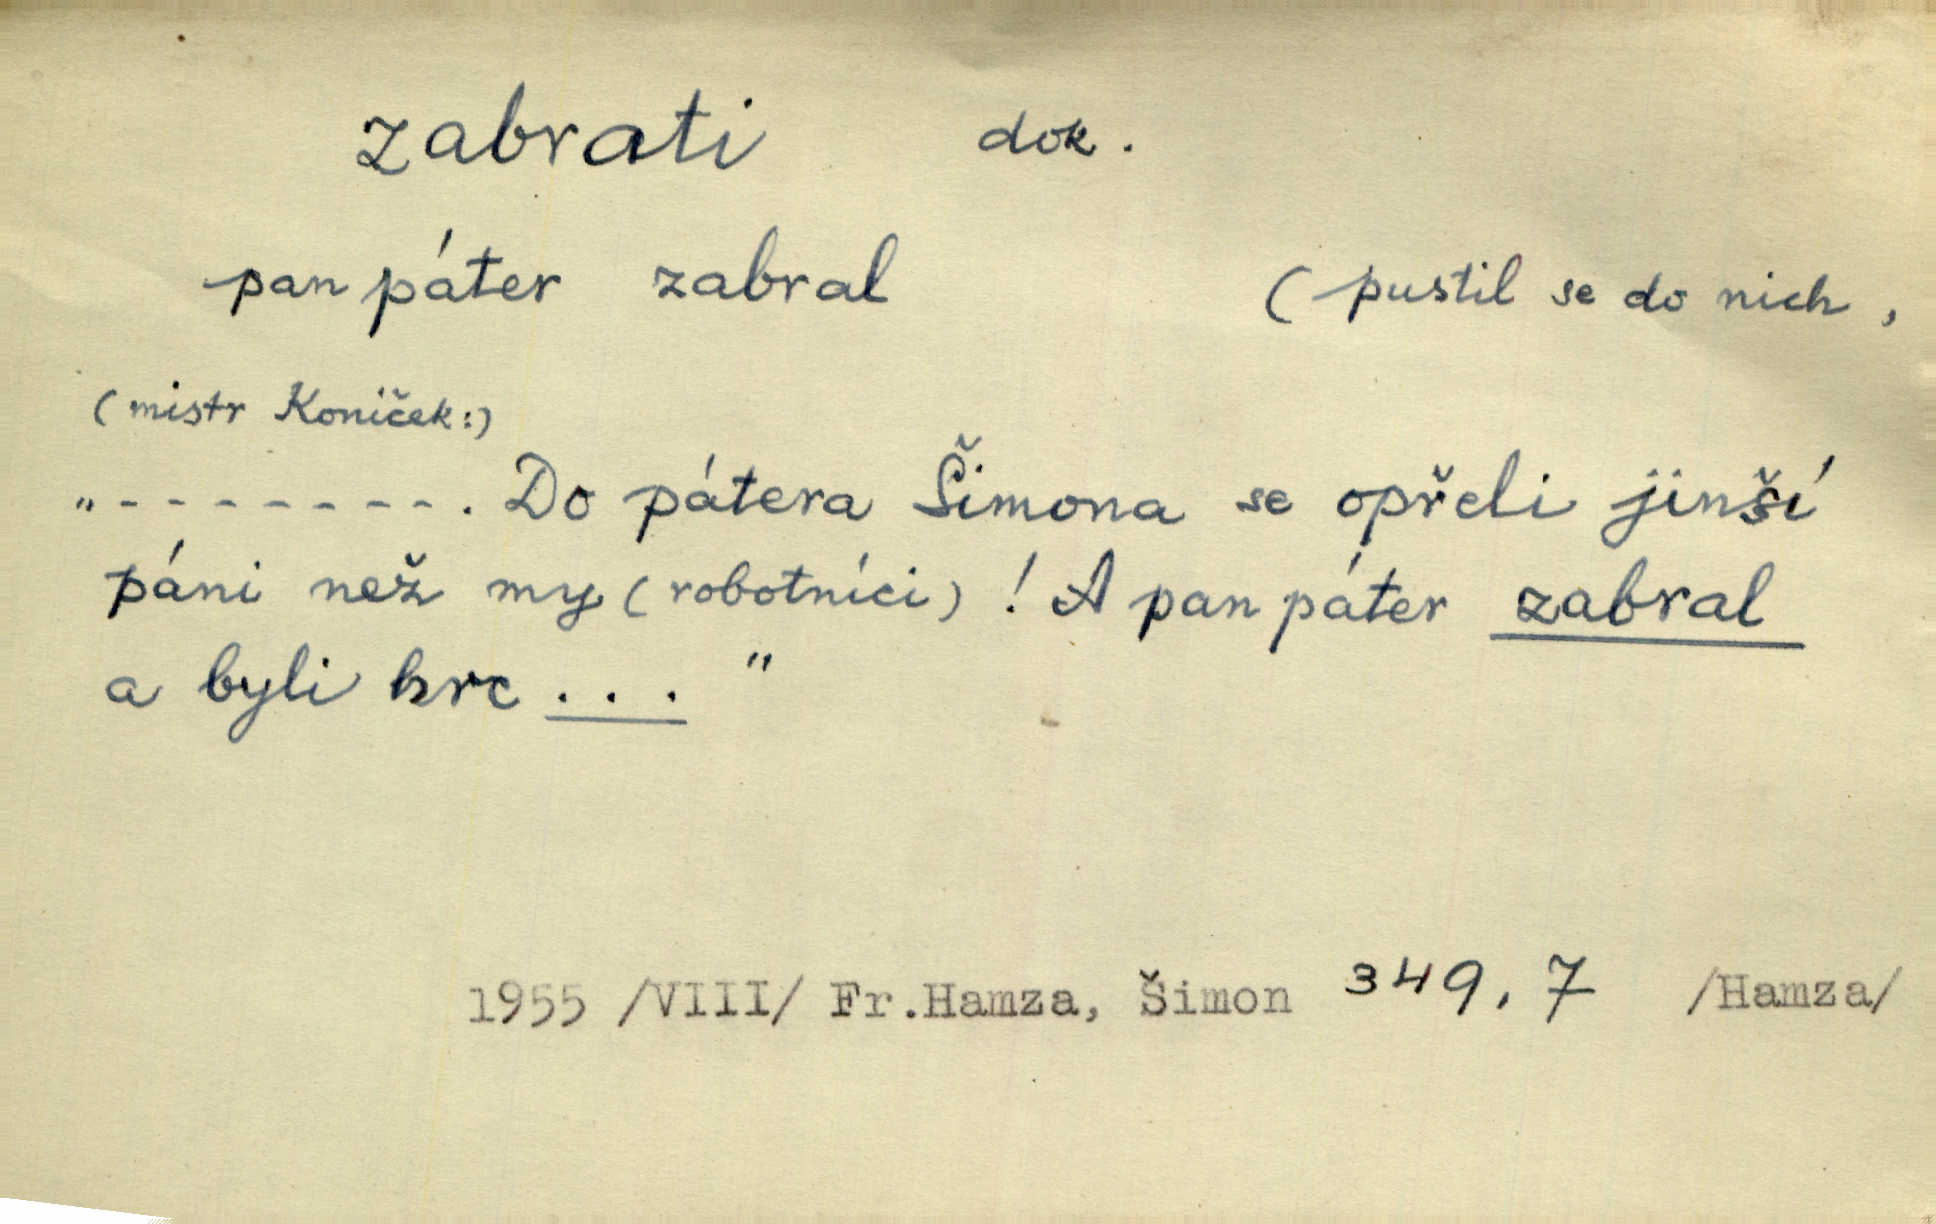 zabrati dok.
pan páter zabral (pustil se do nich,
(mistr Koníček:)
„---------. Do pátera Šimona se opřeli jinší
páni než my (robotníci)! A pan páter zabral
a byli hrc ..."
1955 /VIII/ Fr.Hamza, Šimon 349, 7 /Hamza/